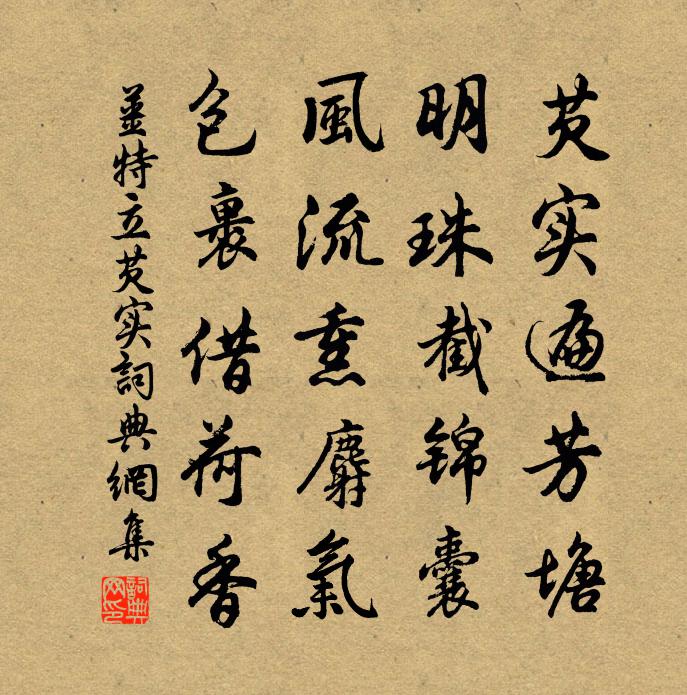 芡实遍芳塘
明珠截锦囊
風流熏麝氣
包裹借荷香
薑特立芡实詞典網集
詞典网印